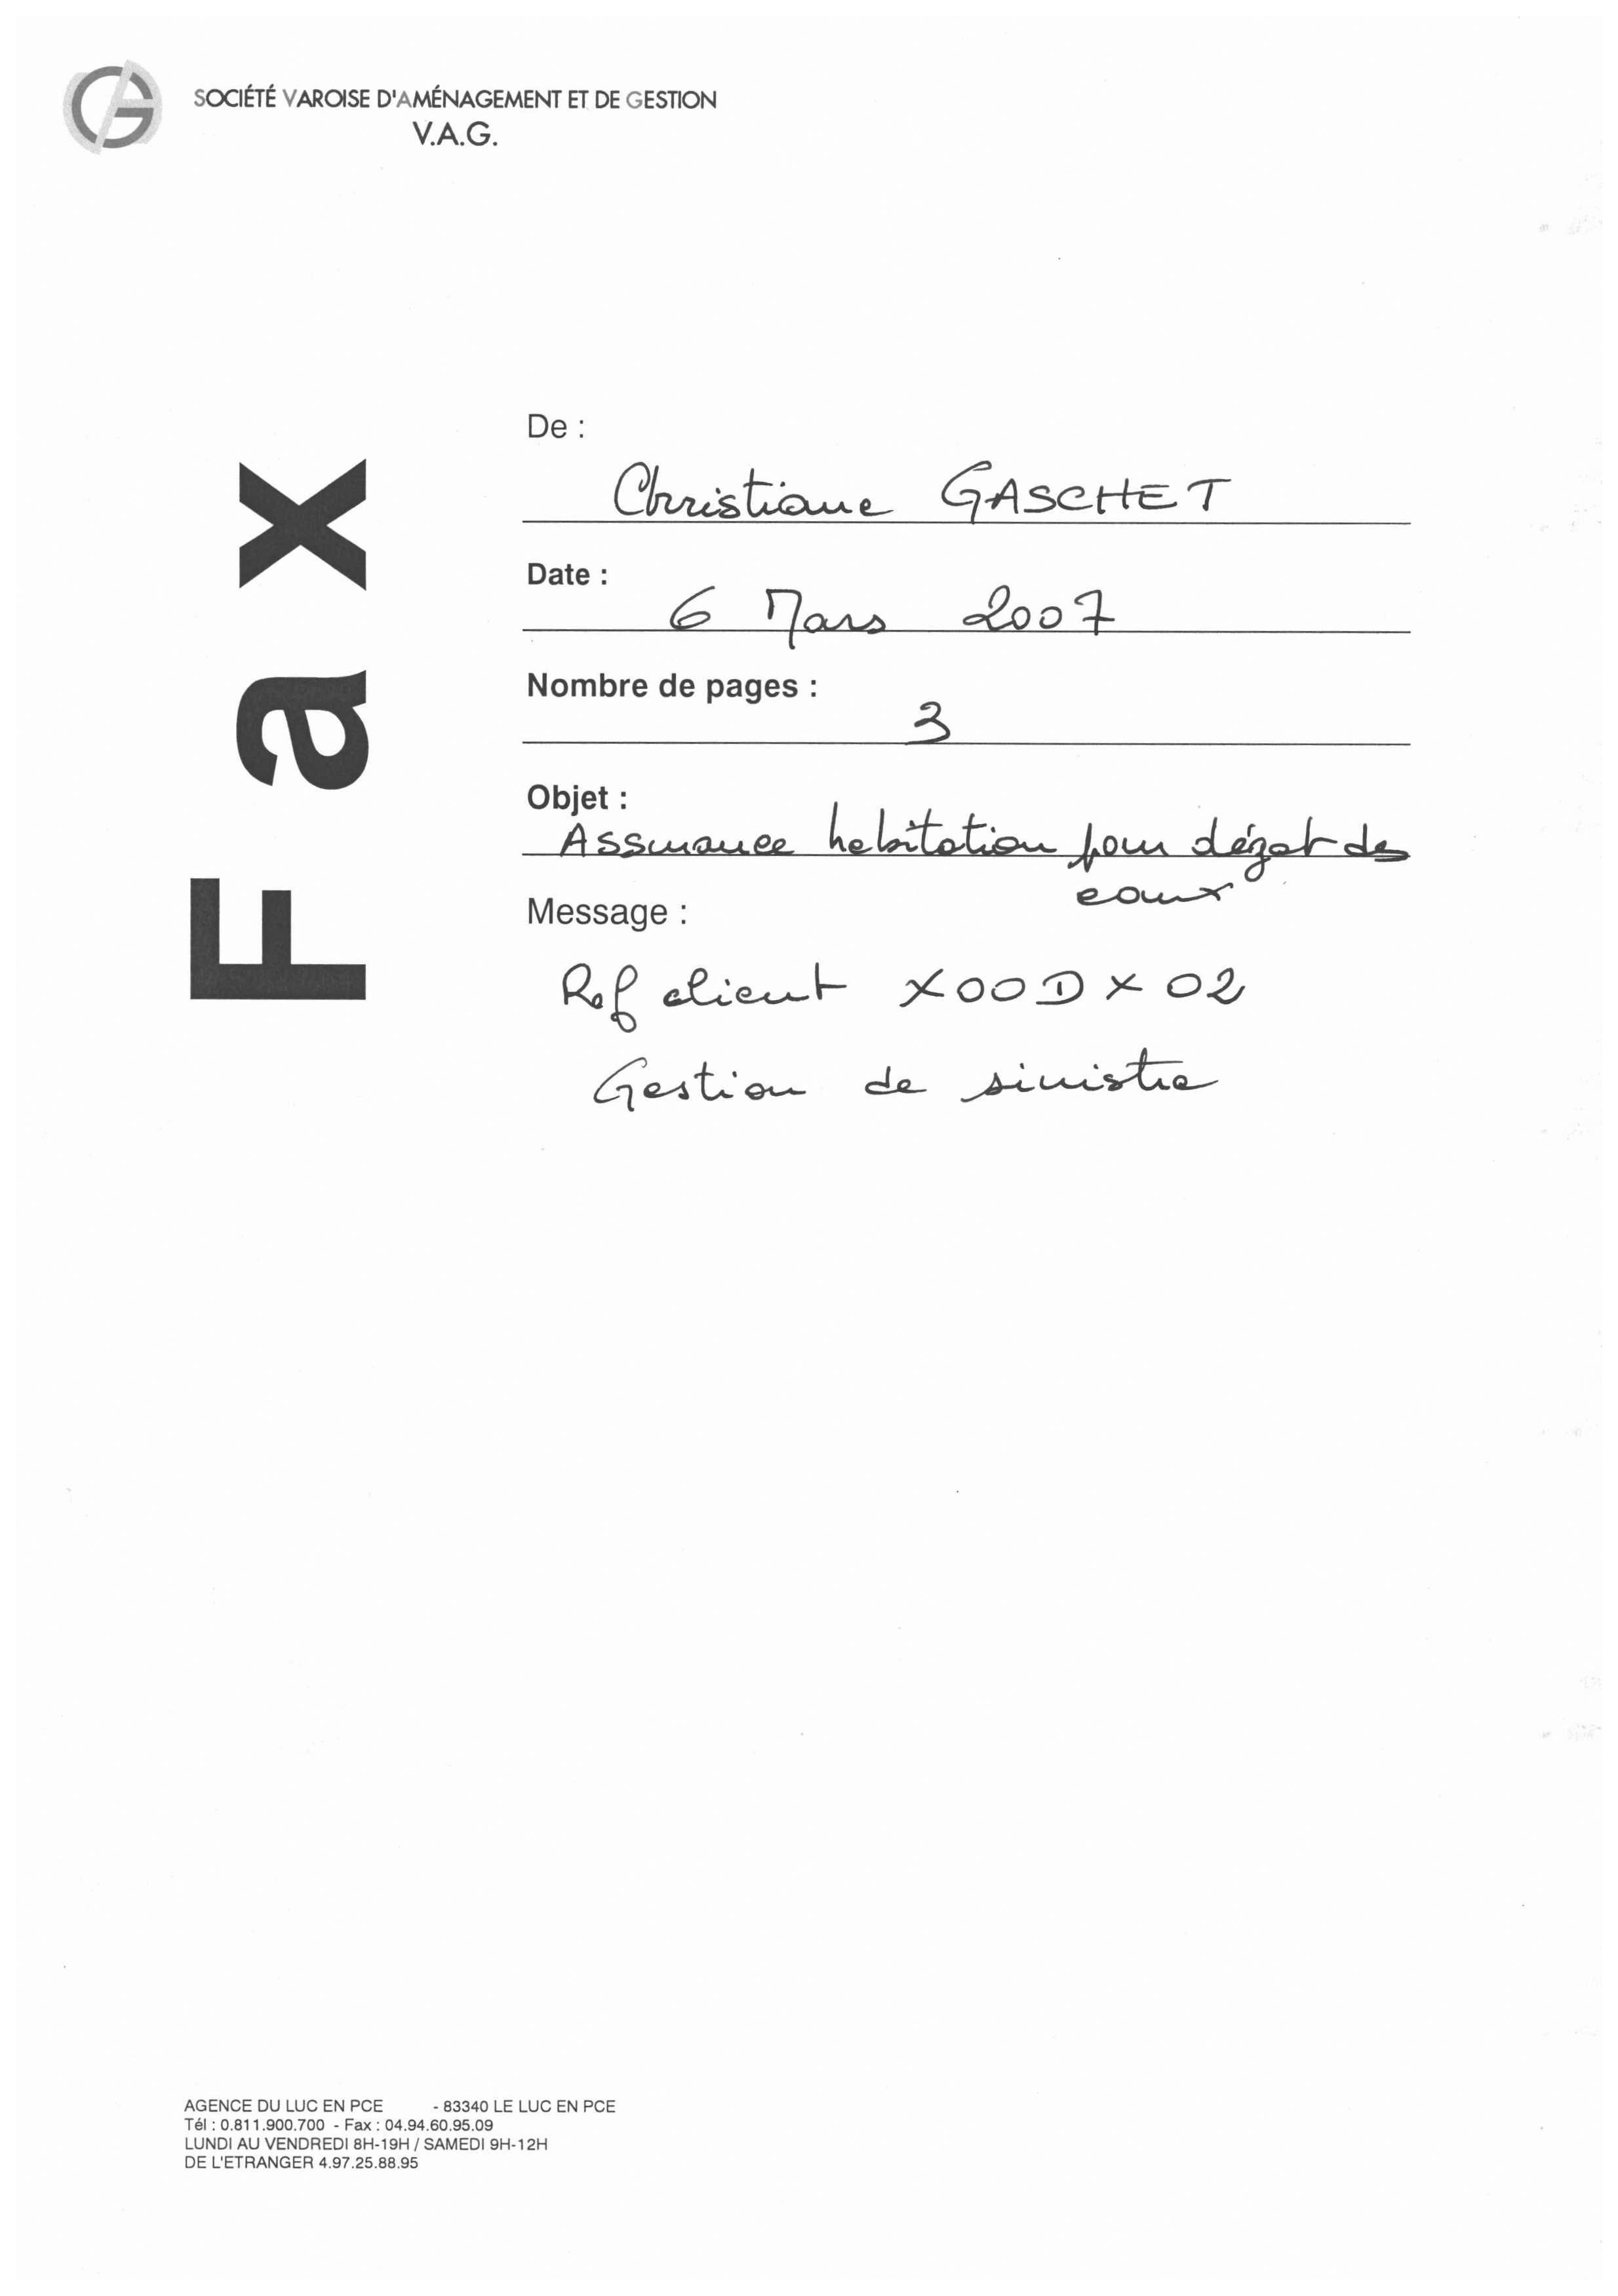 SOCIÉTÉ VAROISE D'AMÉNAGEMENT ET DE GESTION
V.A.G.
Fax
De :
Christiane GASCHET
Date :
6 Mars 2007
Nombre de pages :
3
Objet :
Assurance habitation pour dégat des
eaux
Message :
Ref client X00DX02
Gestion de sinistre
AGENCE DU LUC EN PCE - 83340 LE LUC EN PCE
Tél : 0.811.900.700 - Fax : 04.94.60.95.09
LUNDI AU VENDREDI 8H-19H / SAMEDI 9H-12H
DE L'ETRANGER 4.97.25.88.95